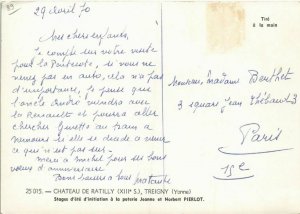 89
29 Avril 70
Tiré
à la main
Mes chers enfants,
Je compte sur votre visite
pour la Pentecôte, si vous ne
venez pas en auto, cela n'a pas
d'importance, je pense que
l'oncle André viendra avec
la Renault et pourra aller
chercher Ginette au train à
si elle se décide à venir
ce qui n'est pas sur.
merci à michel pour ses bons
voeux d'anniversaire
Bons baisers à tous
Monsieur, madame Berthet
3 square Jean Thébaud
Paris
15e
25015. - CHATEAU DE RATILLY (XIIIe S.), TREIGNY (Yonne)
Stages d'été d'initiation à la poterie Jeanne et Norbert PIERLOT.